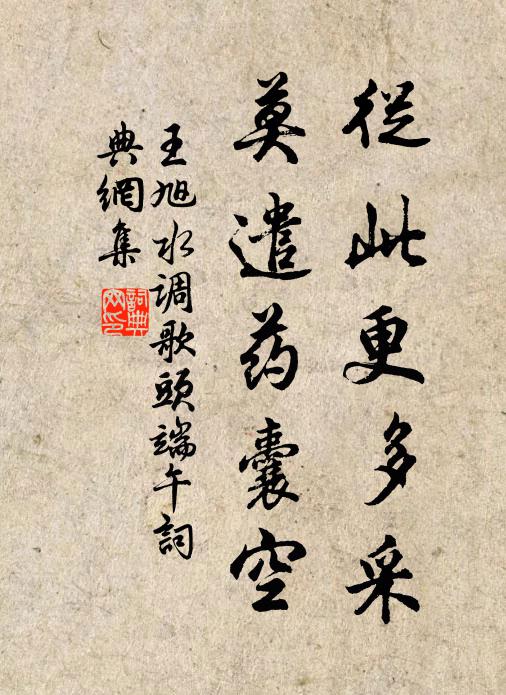 從此更多采
莫遣药囊空
王旭水调歌頭端午詞
典網集
詞典
网印